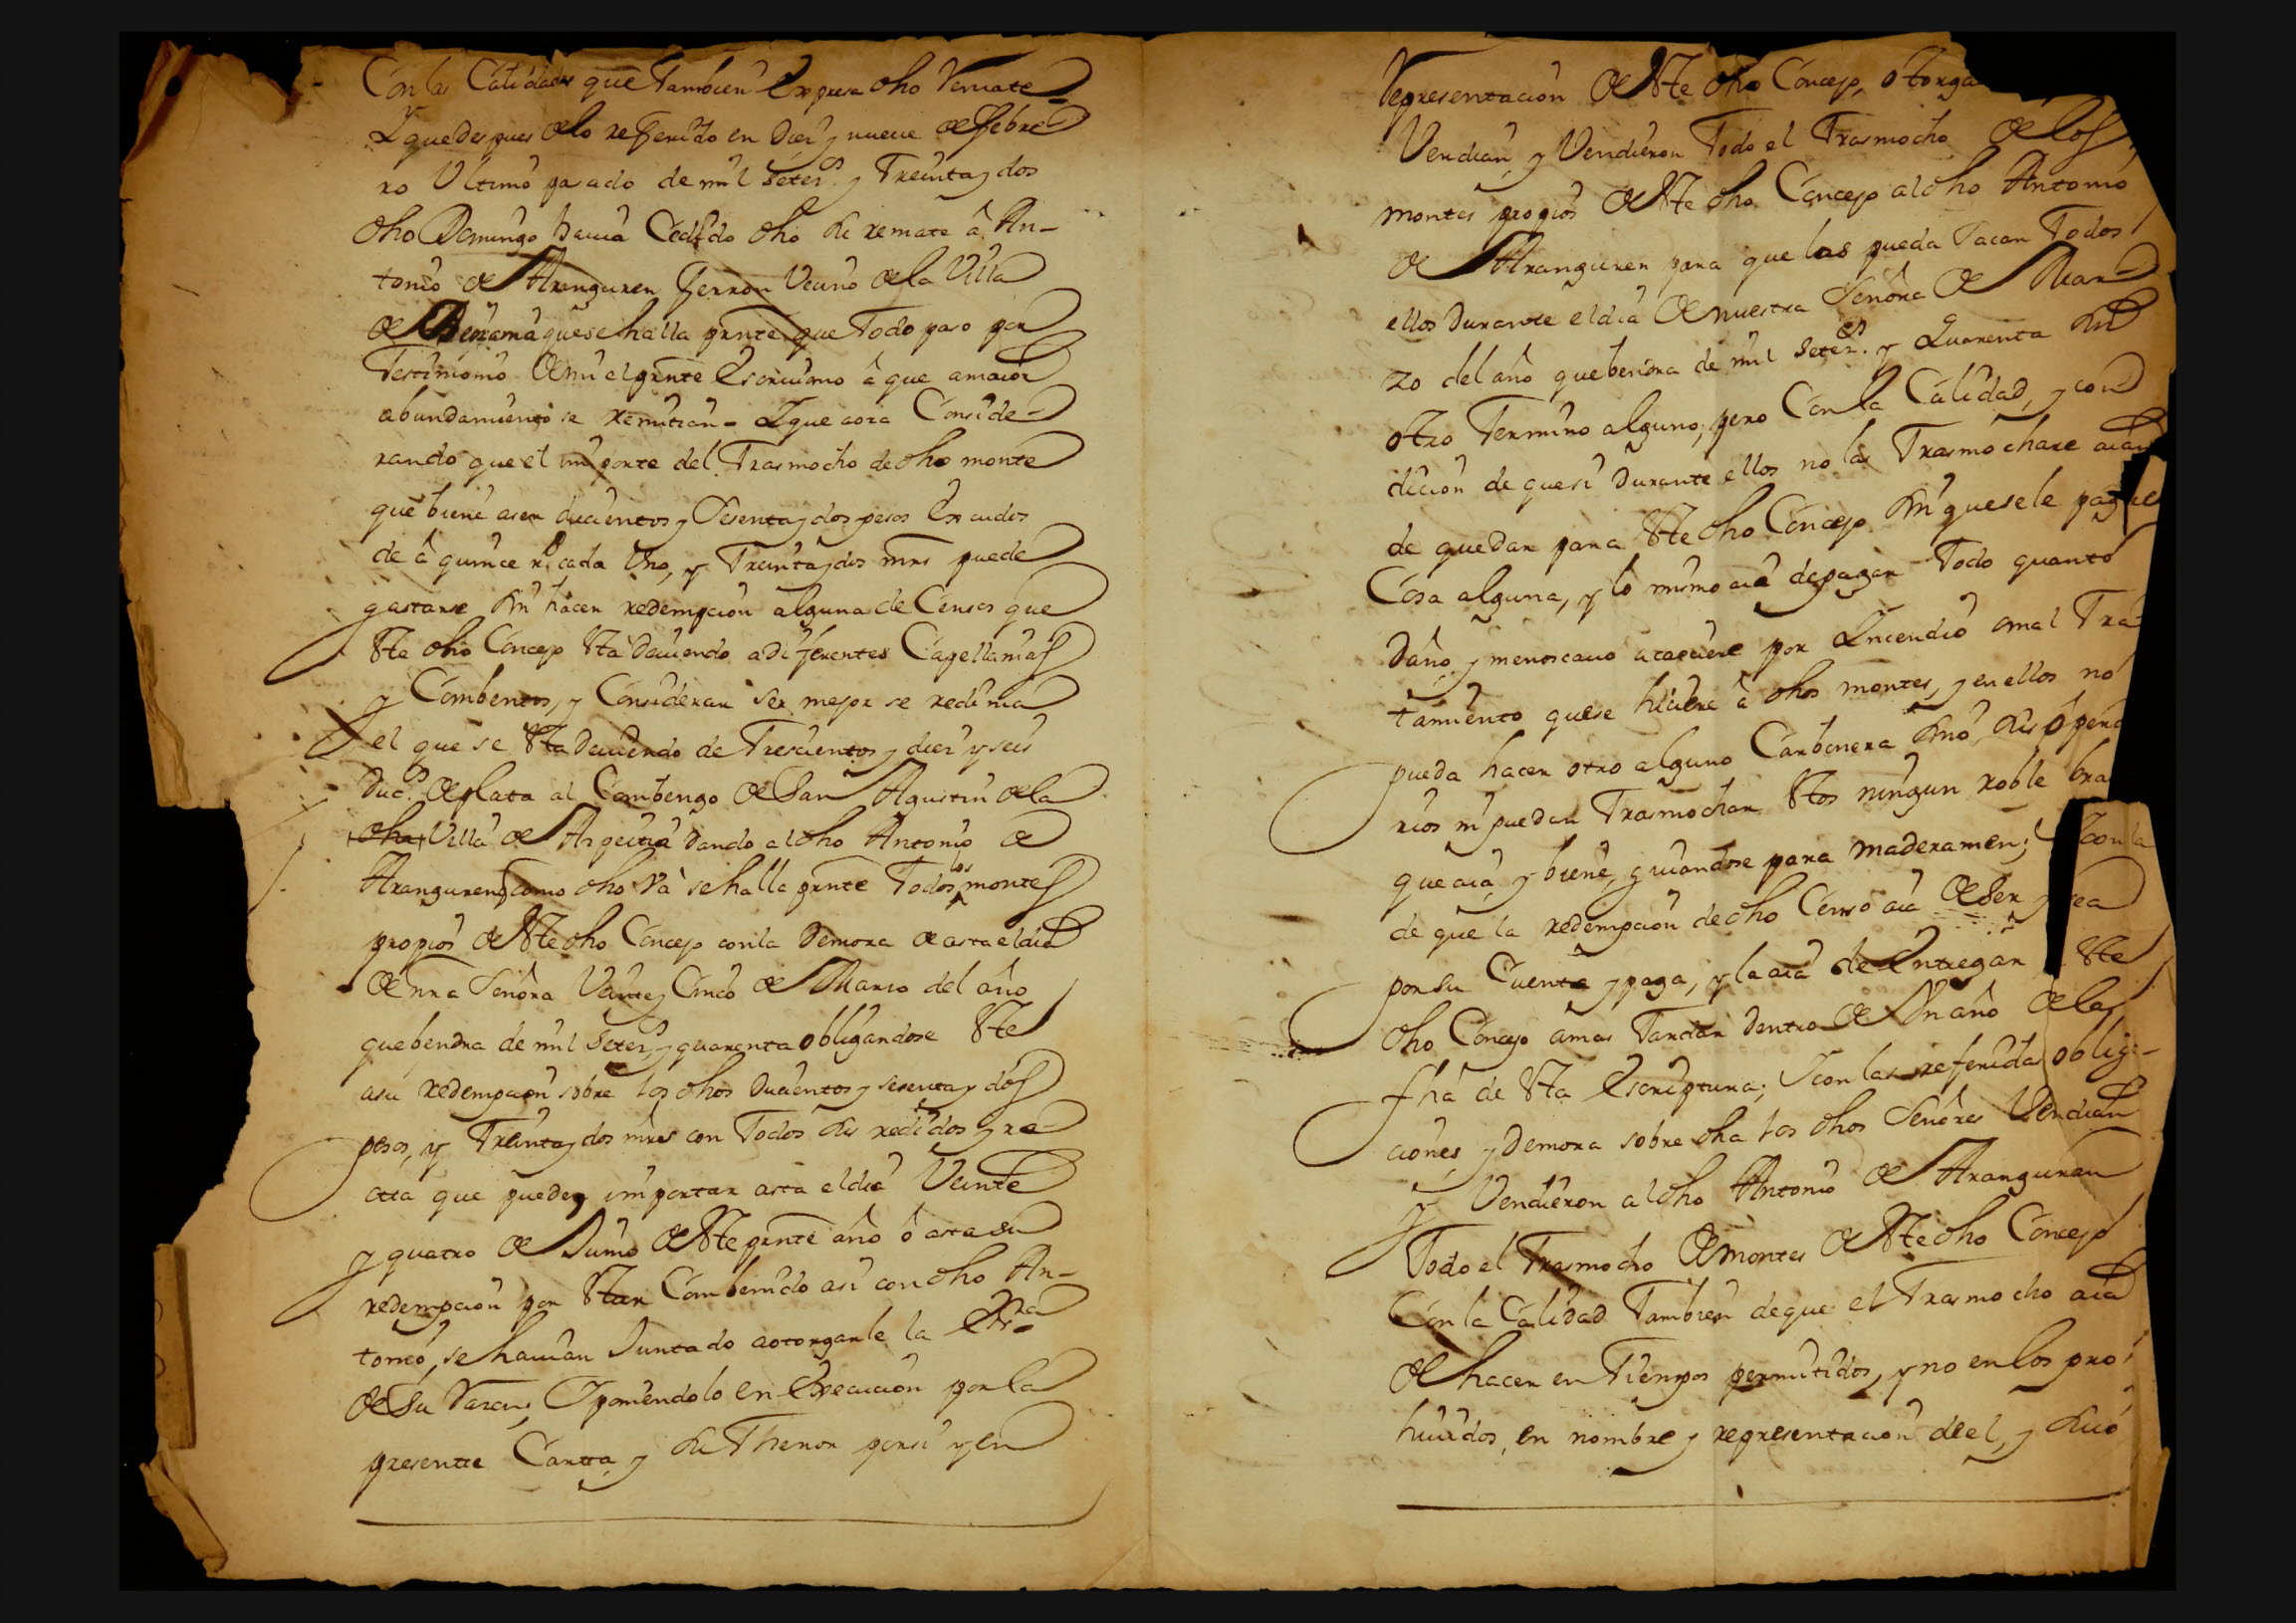 Con las Calidades que tambien Expresa dho Remate
Y que despues de lo referido en Diez y nueve de febre
ro Ultimo pasado de mil setez.os y treinta y dos
dho Domingo havia Cedido dho su remate â An-
tonio de Aranguren ferron Vecino de la Villa
de Beizama que se halla prnte que todo paso por
testimonio de mi el prnte Escriuano â que a maior
abundamiento se remitian = Y que aora Conside-
rando que el importe del Trasmocho de dho monte
que biene a ser Ducientos y Sesenta y dos pesos Escudos
de â quince rs. cada Uno, y Treinta y dos mrs puede
gastarse sin hacer redempcion alguna de Censos que
Este dho Concejo Esta Deuiendo a diferentes Capellanias
y Combentos, y Consideran ser mejor se redima
el que se Esta Deuiendo de Trescientos y diez y seis
Duc.os de plata al Combengo de San Agustin de la
dha Villa de Azpeitia dando al dho Antonio de
Aranguren como dho Va se halla prnte todos los montes
propios de Este dho Concejo con la Demora de asta el dia
de nra Señora Veinte y Cinco de Marzo del año
que bendra de mil setez.s y quarenta obligandose Este
a su redempcion sobre los dhos Ducientos y sesenta y dos
pesos, y Treinta y dos mrs con Todos sus redidos y re
ata que pueden importar asta el dia Veinte
y quatro de Junio de Este prnte año ô asta su
redempcion por Estar Combenido asi con dho An-
tonio, se hauian Juntado a otorgarle la Essra
de su Razon; Y poniendolo en Execucion por la
presente Carta y su Thenor por si y en
Representacion de Este dho Concejo, otorga
Vendian, y Vendieron Todo el Trasmocho de los
montes propios de Este dho Concejo al dho Antonio
de Aranguren para que las pueda sacar Todos
ellos Durante el dia de nuestra Señora de Mar
zo del año que bendra de mil setez.os y Quarenta sin
otro Termino alguno, pero Con la Calidad, y con
dicion de que si Durante ellos no las Trasmochare aian
de quedar para Este dho Concejo sin que se le pague
Cosa alguna, y lo mismo aia de pagar Todo quanto
Daño, y menoscauo acaeciere por Yncendio o mal Tra
tamiento que se hiciere â dhos montes, y en ellos no
pueda hacer otro alguno Carbonera sino sus ôpera
rios ni puedan Trasmochar Estos ningun roble bra
que aia y biene, guiandose para maderamen; Y con la
de que la redempcion de dho Censo aia de ser y sea
por su Cuenta y paga, y la aia de Entregar a Este
dho Concejo a mas Tardar Dentro de Un año de la
fha de Esta Escriptura; Y con las referidas oblig-
aciones y Demora sobre dha los dhos Señores Vendian
y Vendieron al dho Antonio de Aranguren
Todo el Trasmocho de montes de Este dho Concejo
Con la Calidad Tambien de que el Trasmocho aia
de hacer en Tiempos permitidos, y no en los pro
hiuidos, en nombre y representacion de el, y